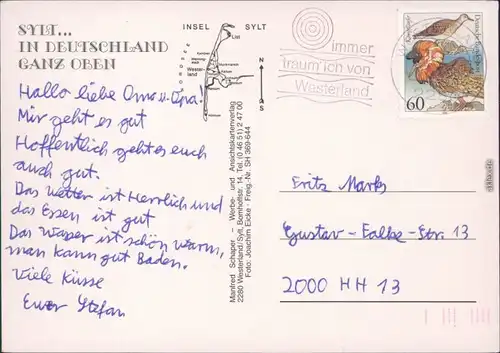 SYLT...
IN DEUTSCHLAND
GANZ OBEN
Hallo liebe Oma u. Opa!
Mir geht es gut
Hoffentlich geht es euch
auch gut.
Das Wetter ist Herrlich und
das Essen ist gut
Das Wasser ist schön warm,
man kann gut Baden.
Viele Küsse
Euer Stefan
INSEL SYLT
List
Westerland
N
S
Manfred Schaper - Werbe- und Ansichtskartenverlag
2280 Westerland/Sylt, Bomhoffstr. 14, Tel. (0 46 51) 2 47 00
Foto: Joachim Eicke - Freig.-Nr. SH 369-644
immer
traum' ich von
Westerland
Deutsche Bundespost
60
Fritz Marks
Gustav-Falke-Str. 13
2000 HH 13